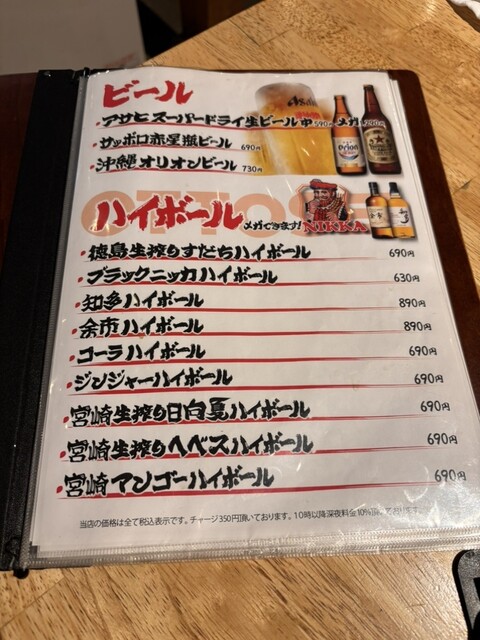 ビール
Asahi
・アサヒスーパードライ生ビール 中 メガ
・サッポロ赤星瓶ビール 690円
・沖縄オリオンビール 730円
Orion
ハイボール メガできます! NIKKA
・徳島生搾りすだちハイボール 690円
・ブラックニッカハイボール 630円
・知多ハイボール 890円
・余市ハイボール 890円
・コーラハイボール 690円
・ジンジャーハイボール 690円
・宮崎生搾り日向夏ハイボール 690円
・宮崎生搾りヘベスハイボール 690円
・宮崎マンゴーハイボール 690円
当店の価格は全て税込表示です。チャージ350円頂いております。10時以降深夜料金10%頂いております。